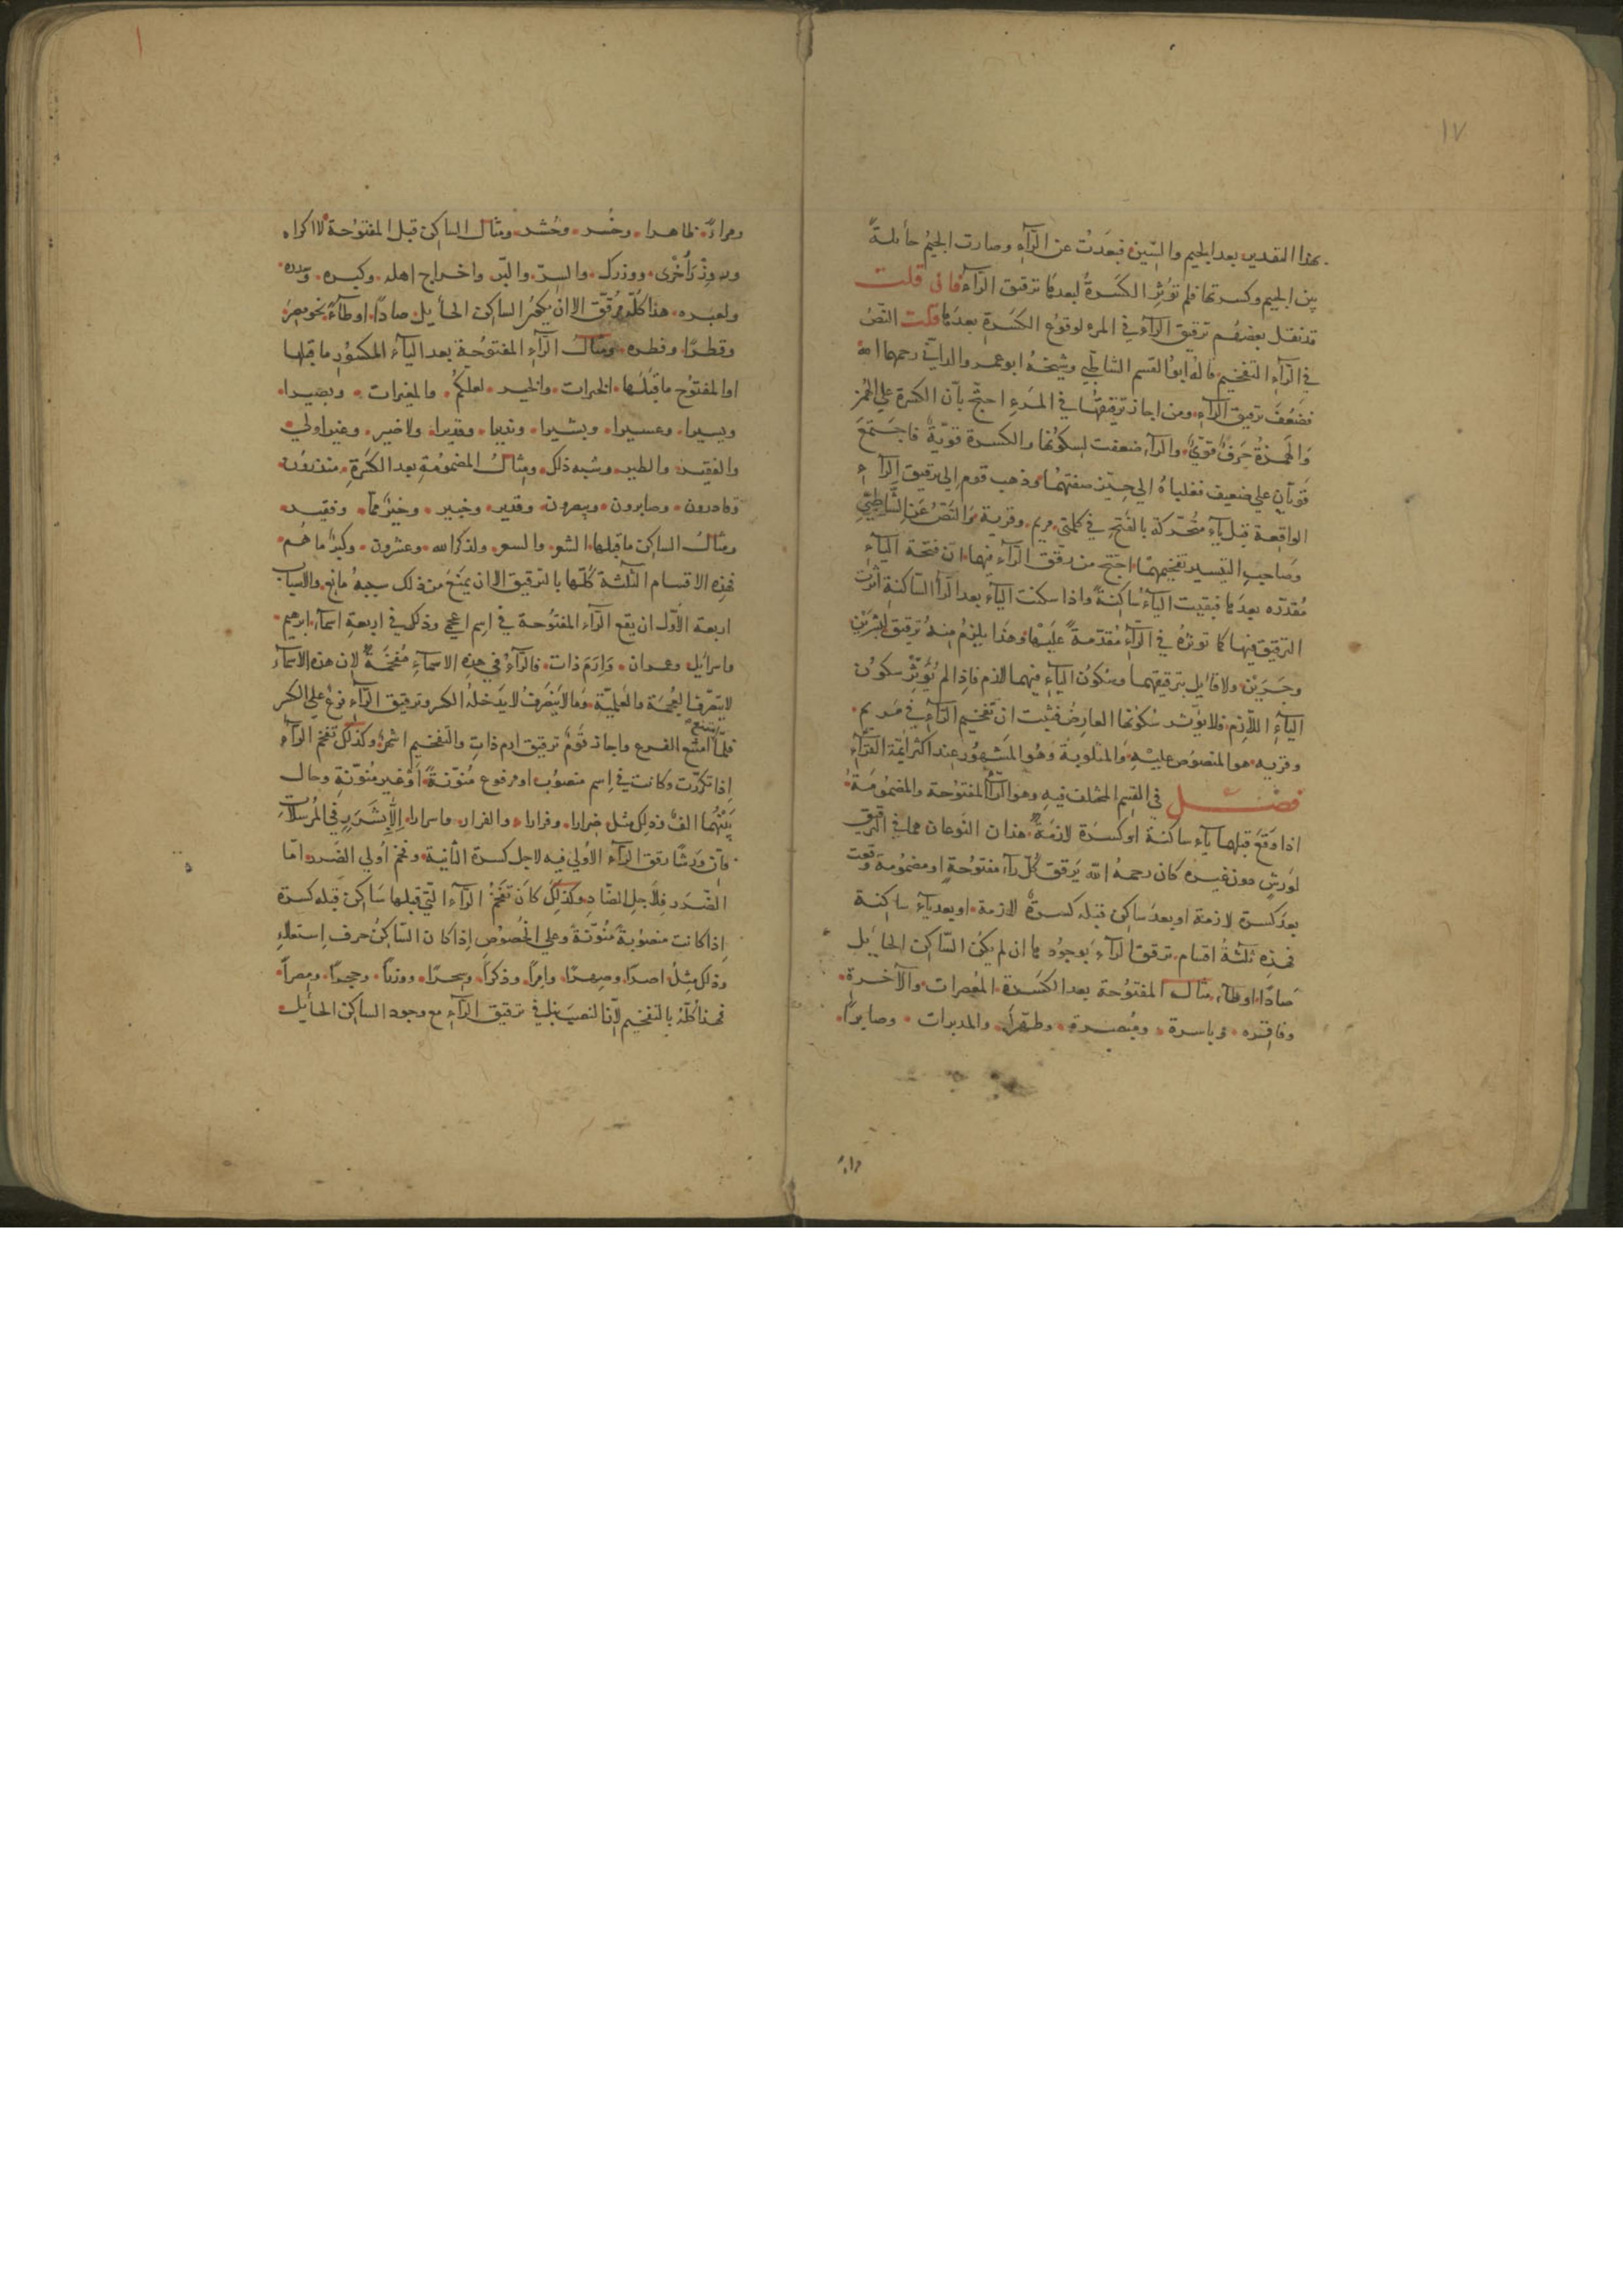 ١٧
بهذا التقدير بعد الجيم والسين فبعدت عن الرآء وصارت الجيم حآئلةً
بين الجيم وكسرتها فلم تؤثر الكسرة لبعدها ترقيق الرآء فان قلت
قد نقل بعضهم ترقيق الرآء في المرء لوقوع الكسرة بعدها قلت النصّ
في الرآء التفخيم قاله ابو القسم الشاطبي وشيخه ابو عمرو الداني رحمهما الله
فضعف ترقيق الرآء ومن اجاز ترقيقها في المرء احتج بأن الكسرة على الهمز
والهمزة حرف قويّ والرآء ضعفت لسكونها والكسرة قويّة فاجتمع
قويان على ضعيف فغلباه الى حيّز صفتهما وذهب قوم الى ترقيق الرآء
الواقعة قبل يآء متحركة بالفتح في كلمتي مريم وقرية والنصّ عن الشاطبي
وصاحب التيسير تفخيمهما احتج من رقق الرآء فيها ان فتحة اليآء
مقدره بعدها فبقيت اليآء ساكنة واذا سكنت اليآء بعد الرآء الساكنة اثرت
الترقيق فيها كما تؤثره في الرآء مقدّمة عليها وهذا يلزم منه ترقيق البشرين
وجرين ولا قآئل بترقيقهما وسكون اليآء فيهما الزم فاذا لم يؤثّر سكون
اليآء اللازم فلا يؤثر سكونها العارض فثبت ان تفخيم الرآء في مريم
وقريه هو المنصوص عليه والمتلو به وهو المشهور عند اكثر ائمّة القرآء
فصل في القسم المختلف فيه وهو الرآء المفتوحة والمضمومة
اذا وقع قبلها يآء ساكنة او كسرة لازمة هذان النوعان هما في الترقيق
لورش دون غيره كان رحمه الله يرقق كل رآء مفتوحة او مضمومة وقعت
بعد كسرة لازمة او بعد ساكن قبله كسرة لازمة او بعد يآء ساكنة
فهذه ثلثة اقسام ترقق الرآء بوجودها ان لم يكن الساكن الحآئل
صادًا او طآء مثال المفتوحة بعد الكسرة المعصرات والآخرة
وفاقره وباسرة ومبصرة وطهّرا والمدبرات وصابرًا
ومرآءً ظاهرا وخسر وحُشر ومثال الساكن قبل المفتوحة لا اكراه
وزر أخرى ووزرك والسرّ والبرّ واخراج اهله وكبره وسدره
ولعبره هذا كله مرقّق الا ان يكون الساكن الحآئل صادًا او طآءً نحو مصر
وقطرًا وفطره ومثال الرآء المفتوحة بعد اليآء المكسور ما قبلها
او المفتوح ما قبلها الخيرات والخير لعلكم والمغيرات وبصيرا
ويسيرا وعسيرا وبشيرا ونذيرا وقديرا ولا خير وغير اولي
والفقير والطير وشبه ذلك ومثال المضمومة بعد الكسرة منذرون
وقادرون وصابرون ويبصرون وقدير وخبير وخير مما وفقير
ومثال الساكن ما قبلها الشعر والسحر ولذكر الله وعشرون وكبر ما هم
فهذه الاقسام الثلثة كلّها بالترقيق الا ان يمنع من ذلك سببه مانع والاسباب
اربعة الاوّل ان يقع الرآء المفتوحة في اسم اعجمي وذلك في اربعة اسمآء ابرهيم
واسرآئيل وعمران وارم ذات فالرآء في هذه الاسمآء مفخّمة لان هذه الاسمآء
لا ينصرف للعجمة والعلميّة وما لا ينصرف لا يدخله الكسر وترقيق الرآء فرع على الكسر
فلمّا امتنع يمتنع الفرع واجاز قوم ترقيق ارم ذات والتفخيم اشهر وكذلك تفخم الرآء
اذا تكررت وكانت في اسم منصوب او مرفوع منوّنة او غير منوّنة وحال
بينهما الف وذلك مثل ضرارا وفرارا والفرار واسرارا الّا بشرر في المرسلات
فان ورشا رقق الرآء الاولى فيه لاجل كسرة الثانية وفخم اولى الضرر امّا
الضرر فلاجل الضاد وكذلك كان تفخم الرآء التي قبلها ساكن قبله كسرة
اذا كانت منصوبة منوّنة وعلى الخصوص اذا كان الساكن حرف استعلاء
وذلك مثل اصرًا وصهرًا وامرًا وذكرًا وسحرًا ووزرًا وحجرًا ومصرًا
فهذا كله بالتفخيم